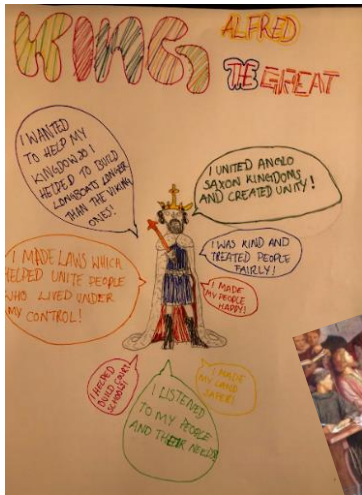 KING ALFRED
THE GREAT
I WANTED
TO HELP MY
KINGDOM SO I
HELPED TO BUILD
LONGBOATS LONGER
THAN THE VIKING
ONES!
I UNITED ANGLO
SAXON KINGDOMS
AND CREATED UNITY!
I WAS KIND AND
TREATED PEOPLE
FAIRLY!
I MADE LAWS WHICH
HELPED UNITE PEOPLE
WHO LIVED UNDER
MY CONTROL!
I MADE
MY PEOPLE
HAPPY!
I HELPED
BUILD COURT
SCHOOLS!
I MADE
MY LAND
SAFER!
I LISTENED
TO MY PEOPLE
AND THEIR NEEDS!